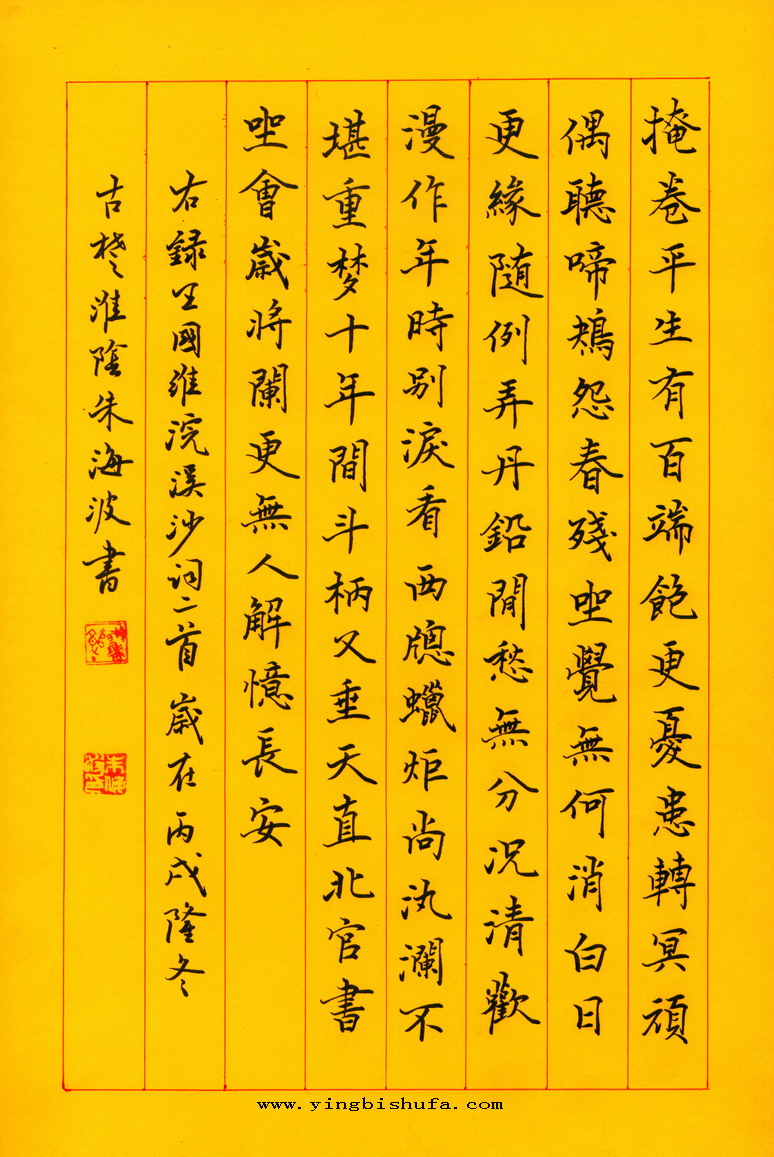 掩卷平生有百端飽更憂患轉冥頑
偶聽啼鴂怨春殘坐覺無何消白日
更緣隨例弄丹鉛閒愁無分況清歡
漫作年時別淚看西窗蠟炬尚汍瀾不
堪重梦十年間斗柄又垂天直北官書
坐會歲將闌更無人解憶長安
右録王國維浣溪沙词二首歲在丙戌隆冬
古楚淮陰朱海波書
www.yingbishufa.com